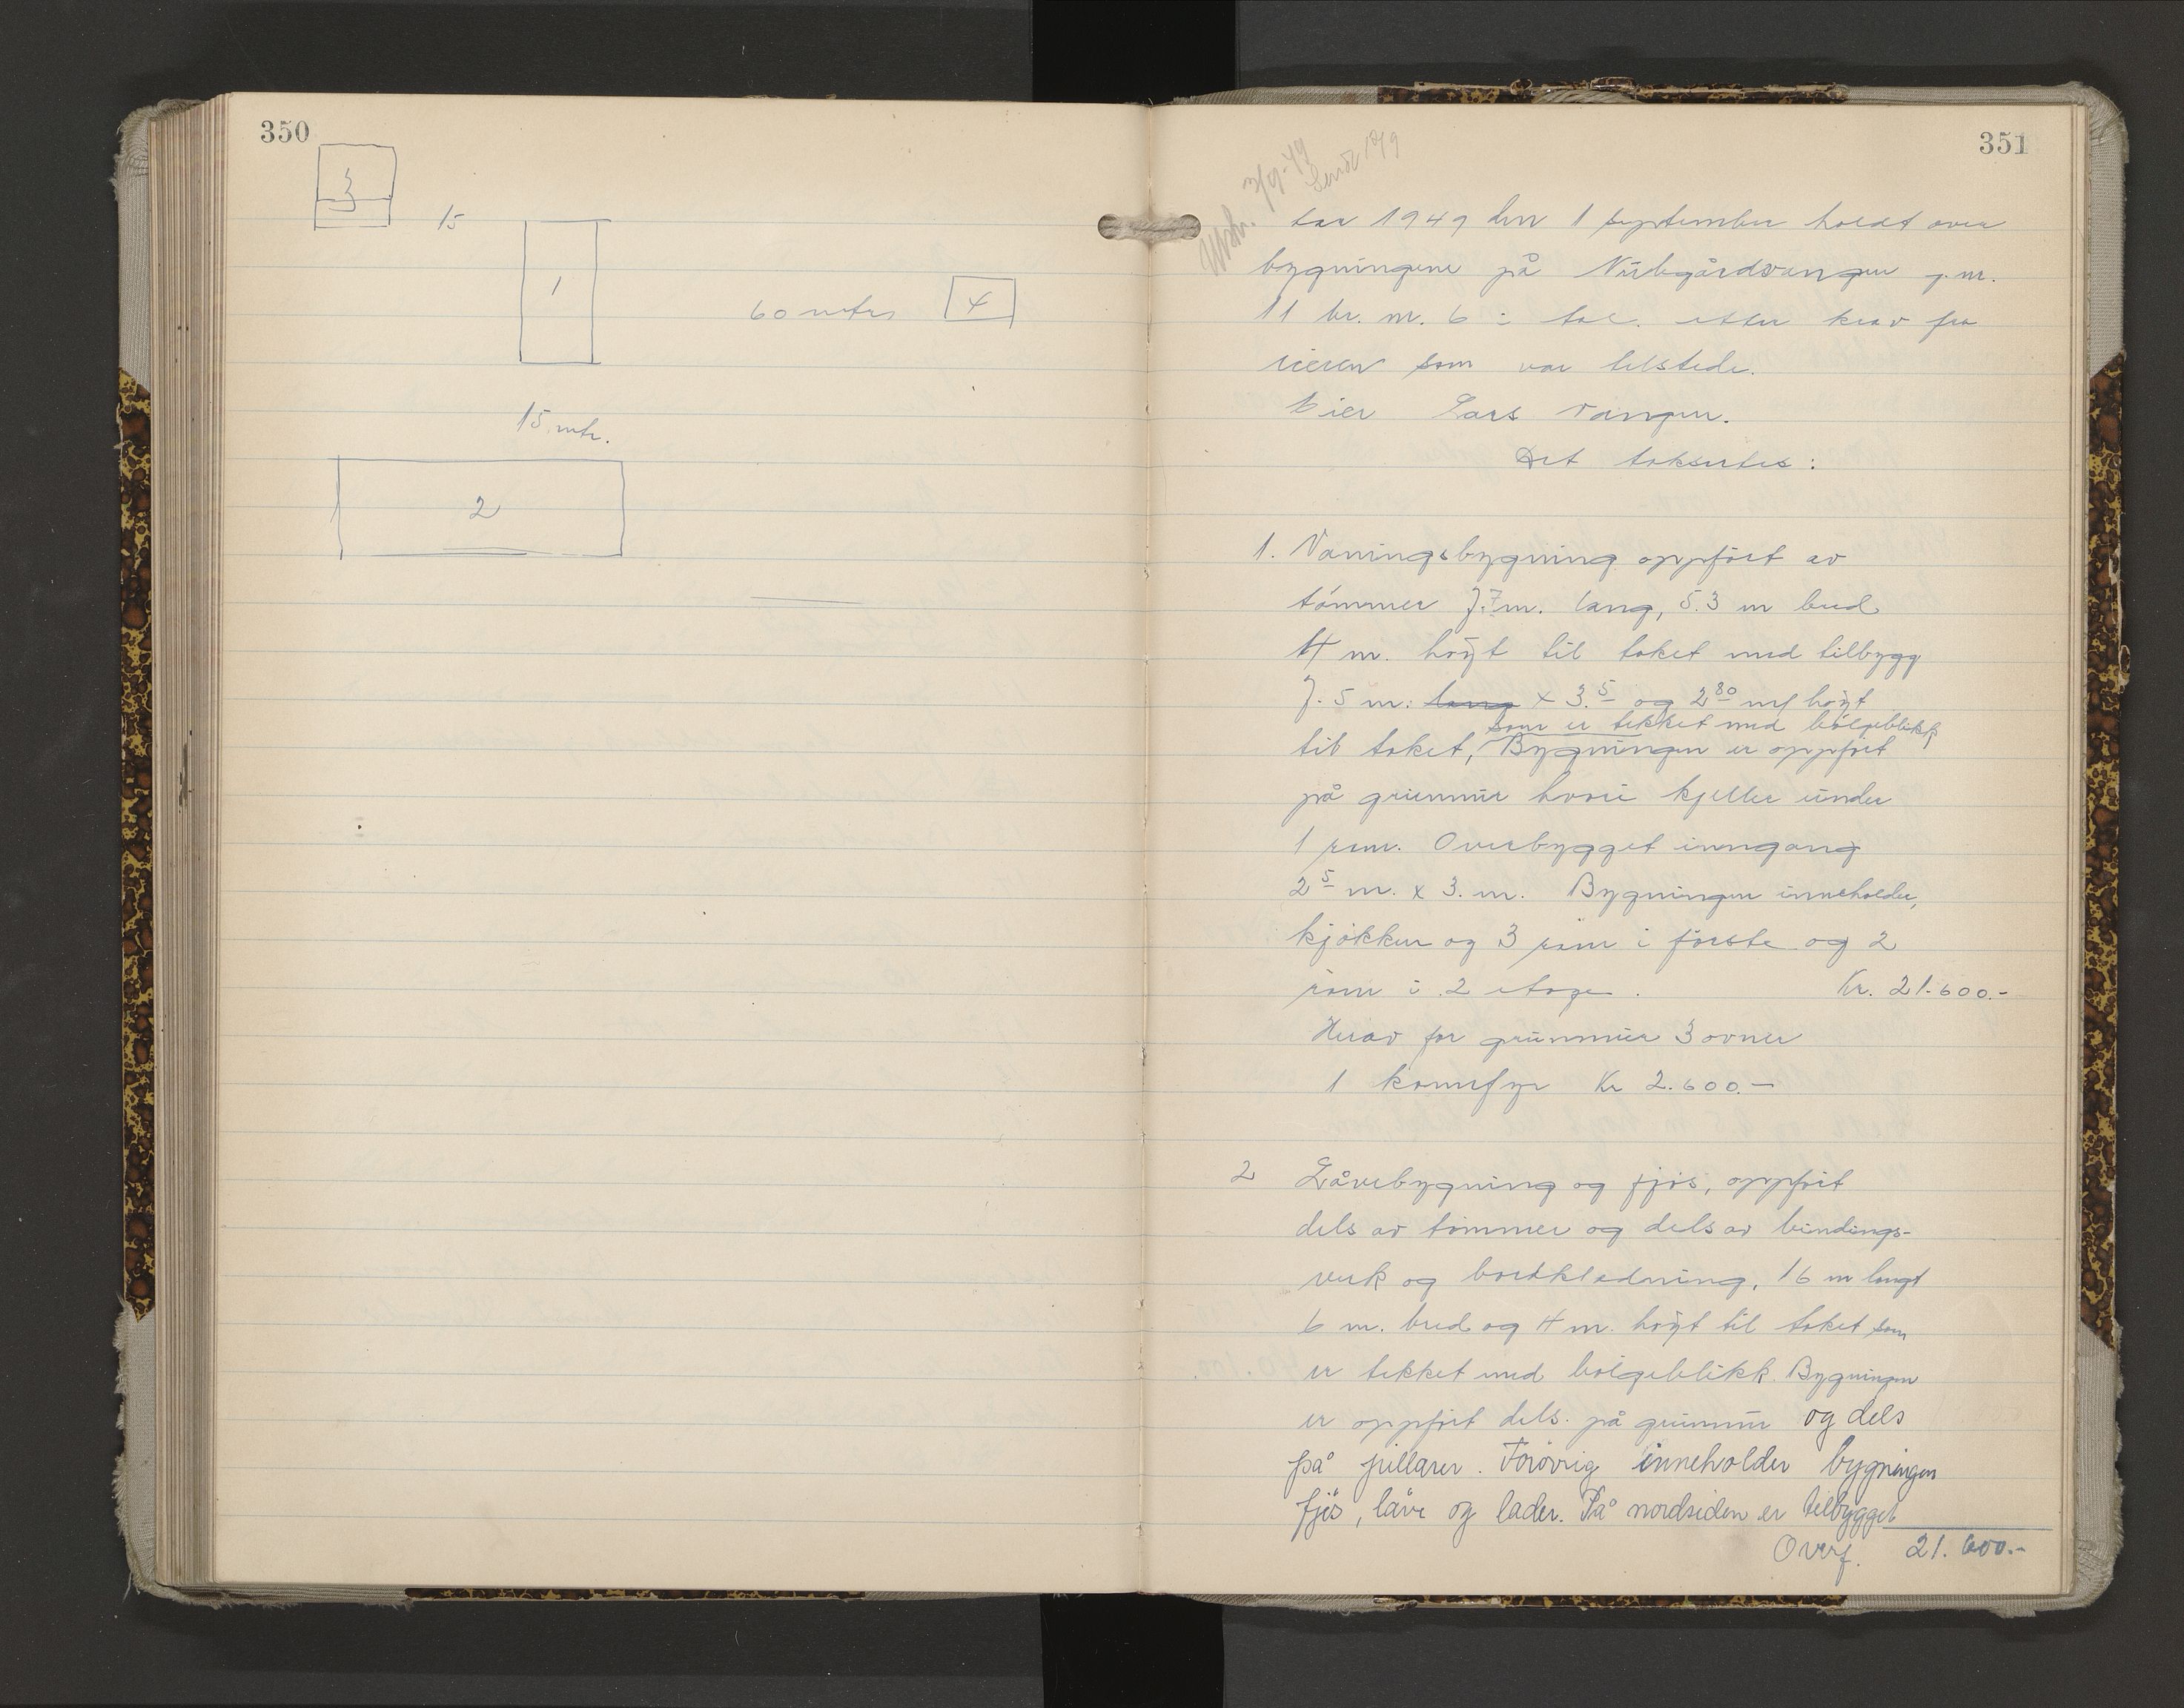 350
3
15
1
60 mtr
4
15 mtr.
2
351
Utskr. 7/9-49
Sendt 12/9
tar 1949 den 1 september holdt over
bygningene på Nübgårdvangen g. nr.
11 br. nr. 6 i etter krav fra
eieren som var tilstede.
Eier Lars Vangen.
Det taksertes:
1. Vaningsbygning oppført av
tømmer 7.7 m. lang, 5.3 m bred
4 m. høyt til taket med tilbygg
7.5 m: lang x 3.5 og 2.80 m høyt
som er tekket med bølgeblikk
til taket, Bygningen er oppført
på grunnmur hvori kjeller under
1 rum. Overbygget inngang
2 5 m. x 3. m. Bygningen inneholder,
kjøkken og 3 rum i første og 2
rum i 2 etage. Kr. 21.600.-
Herav for grunnmur 3 ovner
1 komfyr Kr 2.600.-
2 Låvebygning og fjøs, oppført
dels av tømmer og dels av bindings-
verk og bordkledning, 16 m langt
6 m. bred og 4 m. høyt til taket som
er tekket med bølgeblikk. Bygningen
er oppført dels. på grunnmur og dels
på pillarer. Forøvrig inneholder bygningen
fjøs, låve og lader. På nordsiden er tilbygget
Overf. 21.600.-